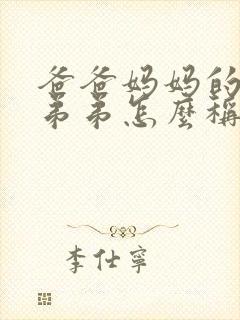 爸爸妈妈的
弟弟怎麼稱
李仕寧